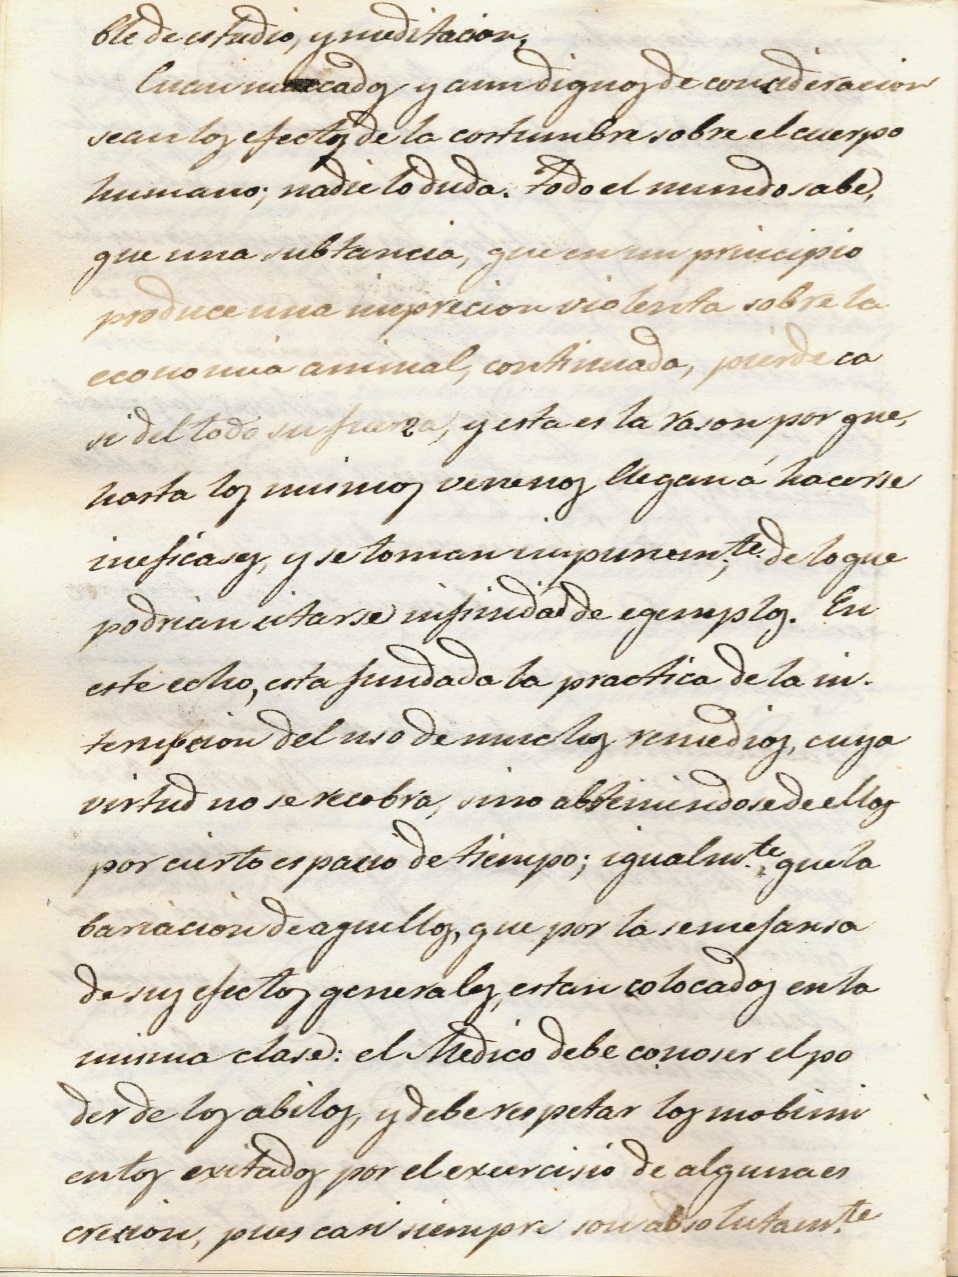 ble de estudio, y meditacion,
Cuan marcados y aun dignos de concideracion
sean los efectos de la costumbre sobre el cuerpo
humano; nadie lo duda. Todo el mundo sabe,
que una subtancia, que en un principio
produce una imprecion violenta sobre la
economia animal, continuada, pierde ca
si del todo su fuerza, y esta es la rason, por que,
hasta los mismos venenos llegan á hacerse
ineficases, y se toman impunem.te de lo que
podrian citarse infinidad de egemplos. En
este echo, esta fundada la practica de la in-
terupcion del uso de muchos remedios, cuya
virtud no se recobra, sino abteniendose de ellos
por cierto espacio de tiempo; igualm.te que la
bariacion de aquellos, que por la semejansa
de sus efectos generales, estan colocados en la
misma clase: el Medico debe conoser el po
der de los abitos, y debe respetar los mobimi
entos exitados por el exercisio de alguna es
crecion, pues casi siempre son absolutam.te